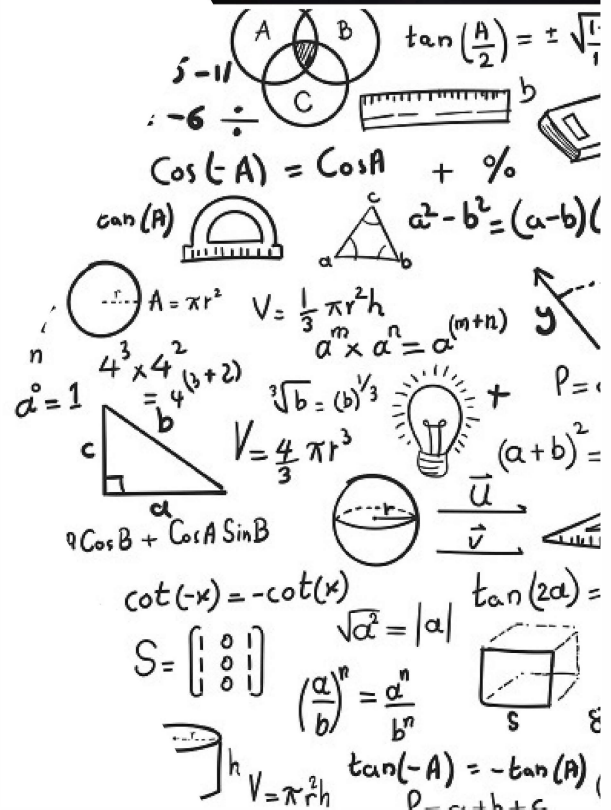 A B
C
tan(A/2) = ±
-11
-6 ÷
b
Cos(-A) = CosA + %
tan(A)
c
a b
a² - b² = (a-b)(
r
A = πr²
V = 1/3 πr²h
y
aᵐ × aⁿ = a⁽ᵐ⁺ⁿ⁾
n
4³ × 4²
= 4⁽³⁺²⁾
a⁰ = 1
³√b = (b)^1/3
+
P =
c b
a
V = 4/3 πr³
(a+b)² =
r
U
v
CosB + CosA SinB
cot(-x) = -cot(x)
tan(2a) =
√a² = |a|
S = [1 0 1
1 0 1
1 0 1]
(a/b)ⁿ = aⁿ/bⁿ
S
r
h
V = πr²h
tan(-A) = -tan(A)
P = a+b+c